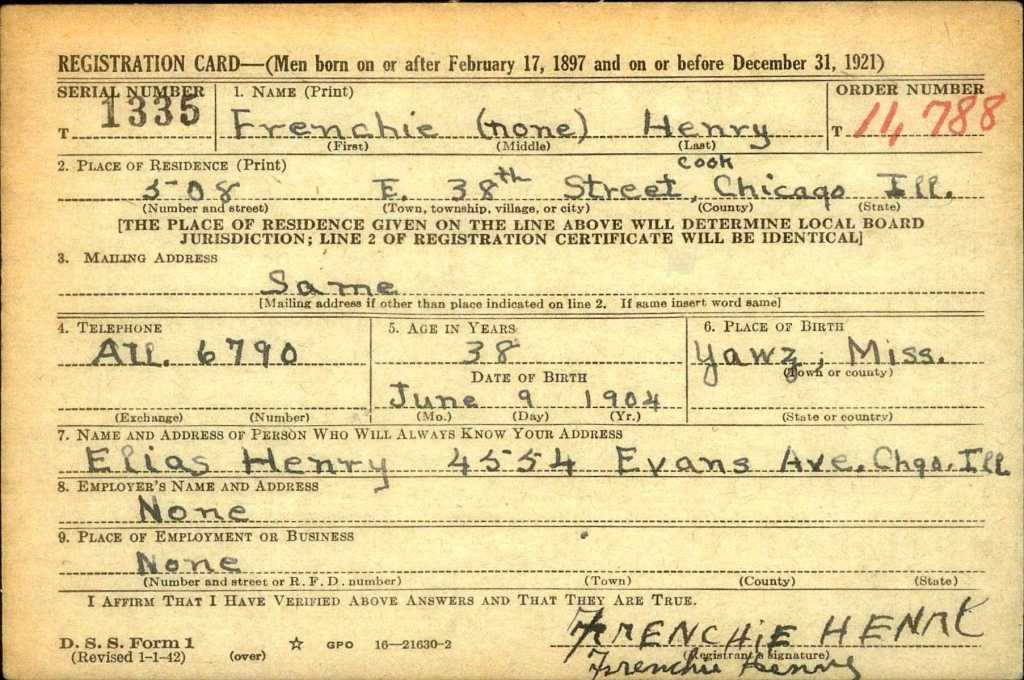 REGISTRATION CARD—(Men born on or after February 17, 1897 and on or before December 31, 1921)
SERIAL NUMBER 1. NAME (Print) ORDER NUMBER
T 1335 Frenchie (none) Henry T 11,788
(First) (Middle) (Last)
2. PLACE OF RESIDENCE (Print) Cook
508 E. 38th Street, Chicago Ill.
(Number and street) (Town, township, village, or city) (County) (State)
[THE PLACE OF RESIDENCE GIVEN ON THE LINE ABOVE WILL DETERMINE LOCAL BOARD
JURISDICTION; LINE 2 OF REGISTRATION CERTIFICATE WILL BE IDENTICAL]
3. MAILING ADDRESS
Same
[Mailing address if other than place indicated on line 2. If same insert word same]
4. TELEPHONE 5. AGE IN YEARS 6. PLACE OF BIRTH
Atl. 6790 38 Yawz, Miss.
DATE OF BIRTH (Town or county)
June 9 1904
(Exchange) (Number) (Mo.) (Day) (Yr.) (State or country)
7. NAME AND ADDRESS OF PERSON WHO WILL ALWAYS KNOW YOUR ADDRESS
Elias Henry 4554 Evans Ave. Chgo. Ill
8. EMPLOYER'S NAME AND ADDRESS
None
9. PLACE OF EMPLOYMENT OR BUSINESS
None
(Number and street or R. F. D. number) (Town) (County) (State)
I AFFIRM THAT I HAVE VERIFIED ABOVE ANSWERS AND THAT THEY ARE TRUE.
FRENCHIE HENRY
D. S. S. Form 1
(Revised 1-1-42) (over) ☆ GPO 16—21630-2 (Registrant's signature)
Frenchie Henry